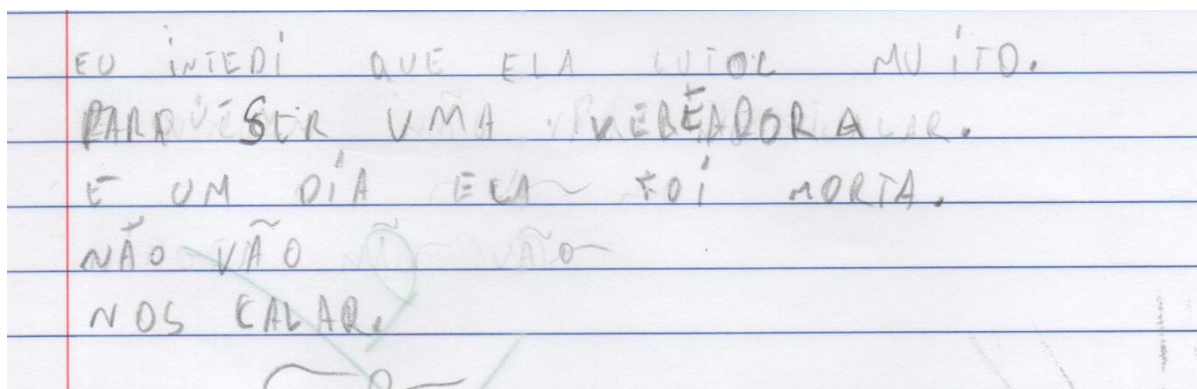 EU INTEDI QUE ELA LUTOL MUITO.
PARA SER UMA VEBEADORA.
E UM DIA ELA FOI MORTA.
NÃO VÃO
NOS CALAR.